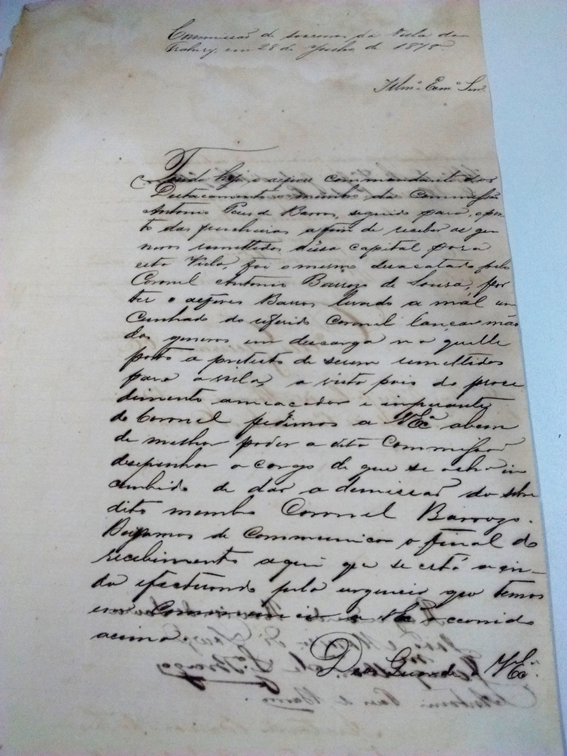 Commissão de soccorros da Villa de
em 28 de Julho de 1878
Illmº. Exmº. Snr.
Tendo hoje o alferes commandante do
Destacamento e membro da Commissão
Antonio Paes de Barros, seguido para o por
to das a fim de receber os ge
neros remettidos dessa capital para
esta Villa, foi o mesmo desacatado pelo
Coronel Antonio Barrozo de Souza, por
ter o alferes Barros levado a mál um
Cunhado do referido Coronel lançar mão
dos generos em descarga n'aquelle
porto a pretexto de serem remettidos
para a villa a vista pois do proce
dimento ameacador e imperante
do Coronel pedimos a VEcª. abem
de melhor poder a dita Commissão
desepenhar o cargo de que se acha in
cumbida de dar a demissão do sobre
dito membro Coronel Barrozo.
Deixamos de Communicar o final do
recebimento aqui que se está a in
da efectuando pela urgencia que temos
em Communicar a VEcª. o occorrido
acima.
Deos Guarde a VEcª.
Antonio Paes de Barros